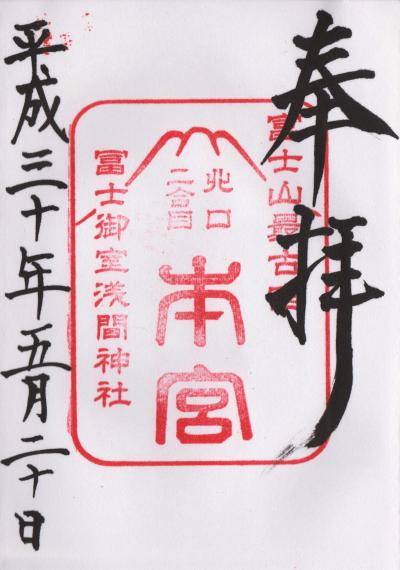 奉拝
富士山最古宮
北口
二合目
本宮
冨士御室浅間神社
平成三十年五月二十日